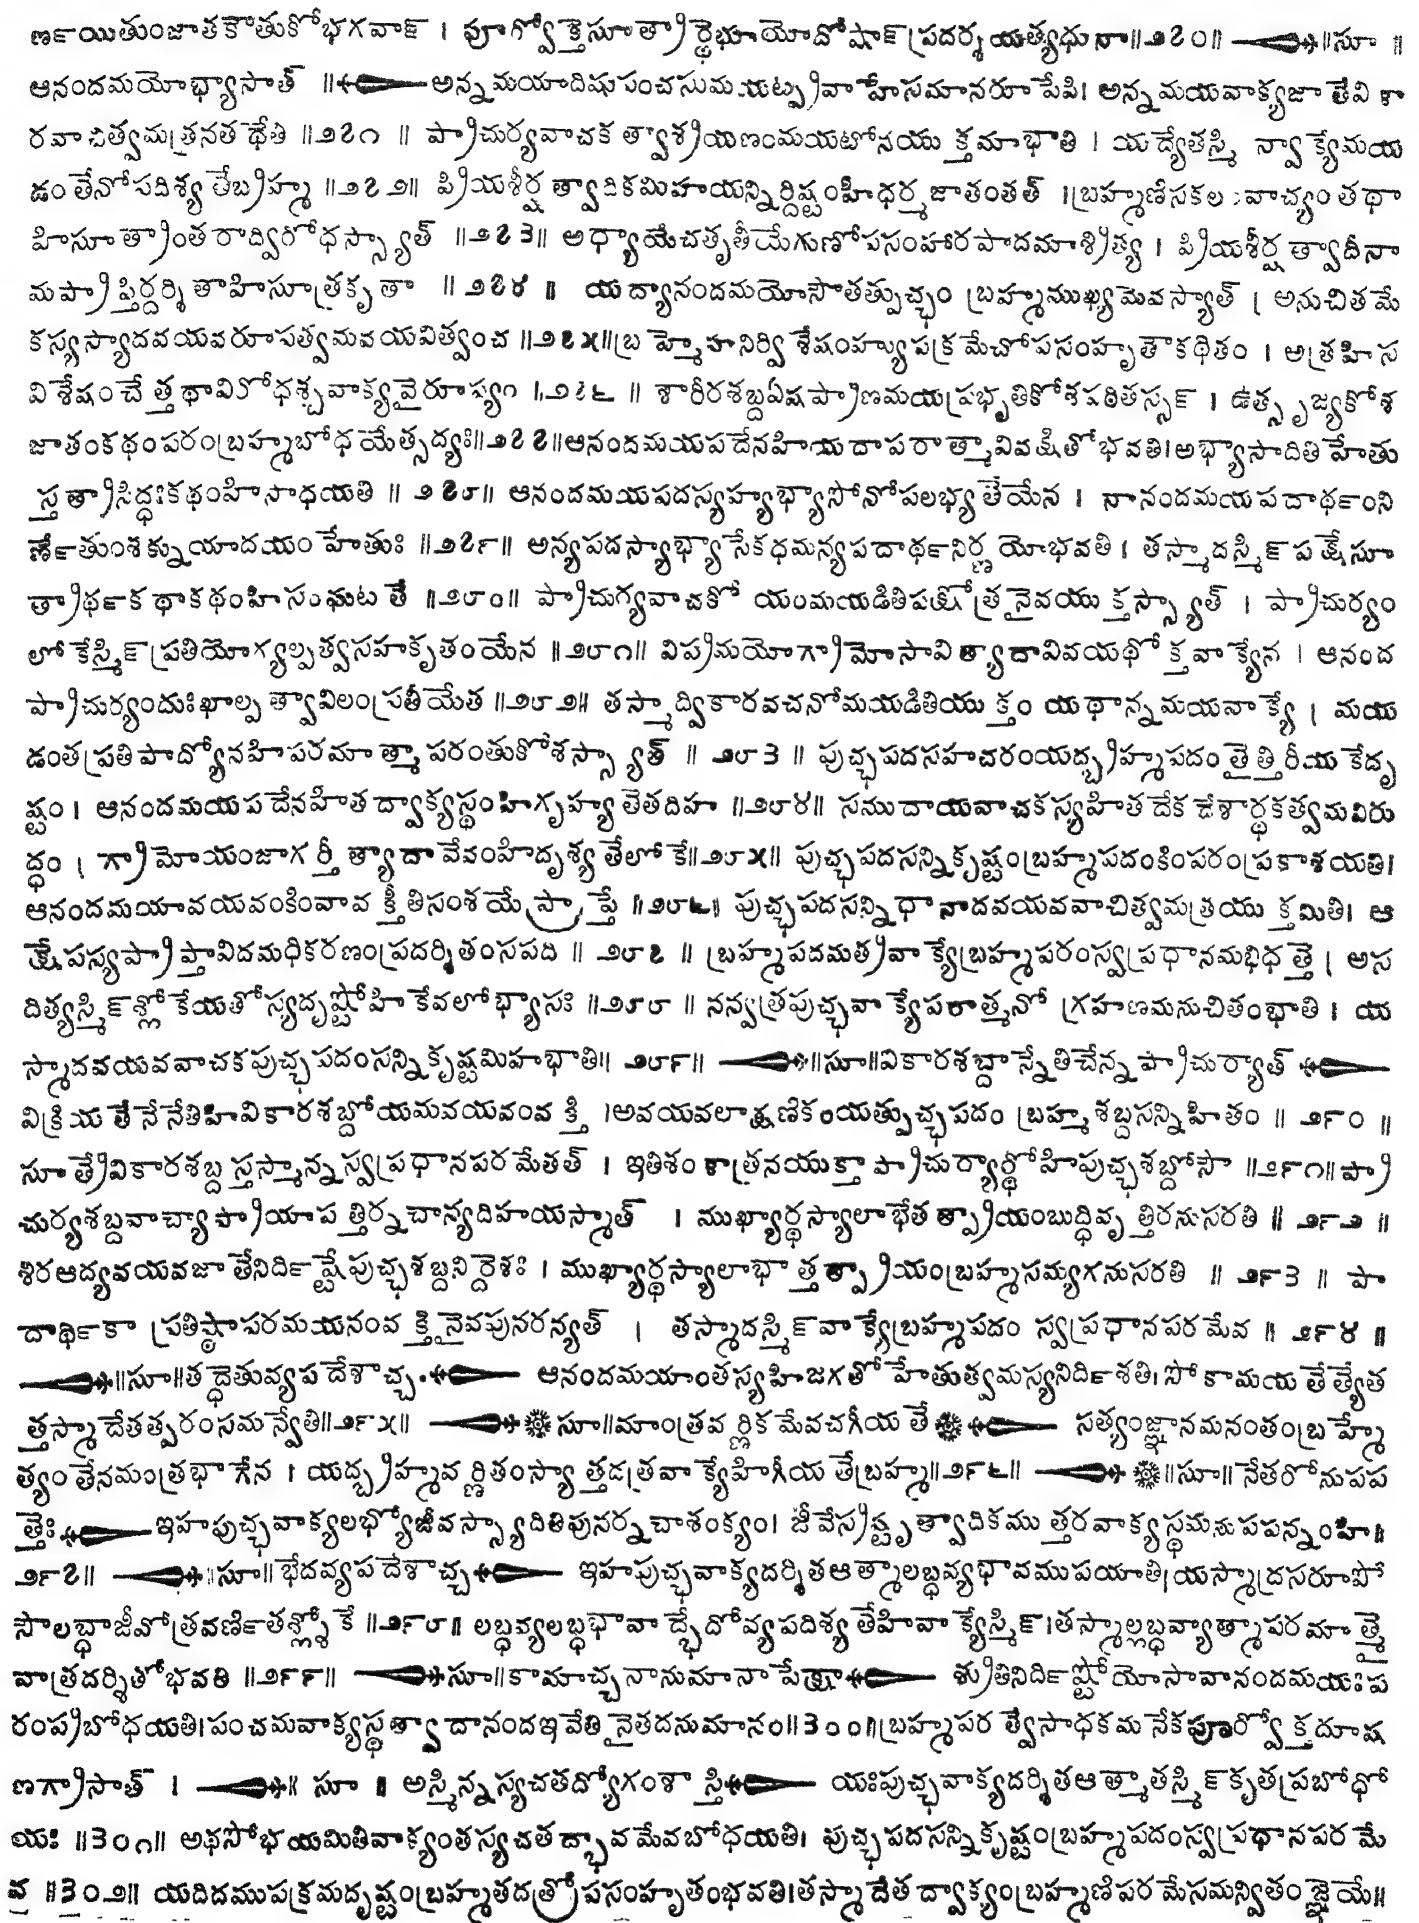 ణ౯యితుంజాతకౌతుకోభగవా౯ । పూగ్వోక్తెసూత్రార్థెభూయోదోషా౯ప్రదర్శయత్యధునా॥౨౭౦॥ ॥సూ ॥
ఆనందమయోభ్యాసాత్ ॥ అన్నమయాదిషుపంచసుమయట్ప్రవాహేసమానరూపేపి। అన్నమయవాక్యజాతేవికా
రవాచిత్వమత్రనతథేతి ॥౨౭౧ ॥ ప్రాచుర్యవాచకత్వాశ్రయణంమయటోనయుక్తమాభాతి । యద్యేతస్మిన్వాక్యేమయ
డంతేనోపదిశ్యతేబ్రహ్మ ॥౨౭౨॥ ప్రియశీర్షత్వాదికమిహయన్నిర్దిష్టంహిధర్మజాతంతత్ ।బ్రహ్మణిసకలంవాచ్యంతథా
హిసూత్రాంతరాద్విరోధస్స్యాత్ ॥౨౭౩॥ అధ్యాయేచతృతీయేగుణోపసంహారపాదమాశ్రిత్య । ప్రియశీర్షత్వాదీనా
మప్రాప్తిర్దర్శితాహిసూత్రకృతా ॥ ౨౭౪ ॥ యద్యానందమయోసౌతత్పుచ్ఛం బ్రహ్మముఖ్యమేవస్యాత్ । అనుచితమే
కస్యస్యాదవయవరూపత్వమవయవిత్వంచ ॥౨౭౫॥బ్రహ్మైహనిర్విశేషంహ్యుపక్రమేచోపసంహృతౌకథితం । అత్రహిస
విశేషంచేత్తథావిరోధశ్చవాక్యవైరూప్యం ॥౨౭౬ ॥ శారీరశబ్దఏషప్రాణమయప్రభృతికోశపఠితస్స౯ । ఉత్సృజ్యకోశ
జాతంకథంపరంబ్రహ్మబోధయేత్సద్యః॥౨౭౭॥ఆనందమయపదేనహియదాపరాత్మావివక్షితోభవతి।అభ్యాసాదితిహేతు
స్తత్రాసిద్ధఃకథంహిసాధయతి ॥ ౨౭౮॥ ఆనందమయపదస్యహ్యభ్యాసోనోపలభ్యతేయేన । నానందమయపదాథ౯ంని
ణే౯తుంశక్నుయాదయంహేతుః ॥౨౭౯॥ అన్యపదస్యాభ్యాసేకధమన్యపదాథ౯నిర్ణయోభవతి । తస్మాదస్మి౯పక్షేసూ
త్రాథ౯కథాకథంహిసంఘటతే ॥౨౮౦॥ ప్రాచుగ్యవాచకోయంమయడితిపక్షోత్రనైవయుక్తస్స్యాత్ । ప్రాచుర్యం
లోకేస్మి౯ప్రతియోగ్యల్పత్వసహకృతంయేన ॥౨౮౧॥ విప్రమయోగ్రామోసావిత్యాదావివయథోక్తవాక్యేన । ఆనంద
ప్రాచుర్యందుఃఖాల్పత్వావిలంప్రతీయేత ॥౨౮౨॥ తస్మాద్వికారవచనోమయడితియుక్తం యథాన్నమయవాక్యే । మయ
డంతప్రతిపాద్యోనహిపరమాత్మాపరంతుకోశస్స్యాత్ ॥ ౨౮౩ ॥ పుచ్ఛపదసహచరంయద్బ్రహ్మపదం తైత్తిరీయకేదృ
ష్టం। ఆనందమయపదేనహితద్వాక్యస్థంహిగృహ్యతేతదిహ ॥౨౮౪॥ సముదాయవాచకస్యహితదేకదేశార్థకత్వమవిరు
ద్ధం । గ్రామోయంజాగర్తీత్యాదావేవంహిదృశ్యతేలోకే॥౨౮౫॥ పుచ్ఛపదసన్నికృష్టంబ్రహ్మపదంకింపరంప్రకాశయతి।
ఆనందమయావయవంకింవావక్తీతిసంశయేప్రాప్తే ॥౨౮౬॥ పుచ్ఛపదసన్నిధానాదవయవవాచిత్వమత్రయుక్తమితి। ఆ
క్షేపస్యప్రాప్తావిదమధికరణంప్రదర్శితంసపది ॥ ౨౮౭ ॥ బ్రహ్మపదమత్రవాక్యేబ్రహ్మపరంస్వప్రధానమభిధత్తె । అస
దిత్యస్మి౯శ్లోకేయతోస్యదృష్టోహికేవలోభ్యాసః ॥౨౮౮ ॥ నన్వత్రపుచ్ఛవాక్యేపరాత్మనో గ్రహణమనుచితంభాతి । య
స్మాదవయవవాచకపుచ్ఛపదంసన్నికృష్టమిహభాతి॥ ౨౮౯॥ ॥సూ॥వికారశబ్దాన్నేతిచేన్నప్రాచుర్యాత్
విక్రియతేనేనేతిహివికారశబ్దోయమవయవంవక్తి ।అవయవలాక్షణికంయత్పుచ్ఛపదం బ్రహ్మశబ్దసన్నిహితం ॥ ౨౯౦ ॥
సూత్రేవికారశబ్దస్తస్మాన్నస్వప్రధానపరమేతత్ । ఇతిశంకాత్రనయుక్తాప్రాచుర్యార్థోహిపుచ్ఛశబ్దోసౌ ॥౨౯౧॥ప్రా
చుర్యశబ్దవాచ్యాప్రాయాపత్తిర్నచాన్యదిహయస్మాత్ । ముఖ్యార్థస్యాలాభేతత్ప్రాయంబుద్ధివృత్తిరనుసరతి ॥ ౨౯౨ ॥
శిరఆద్యవయవజాతేనిది౯ష్టేపుచ్ఛశబ్దనిర్దెశః । ముఖ్యార్థస్యాలాభాత్తత్ప్రాయంబ్రహ్మసమ్యగనుసరతి ॥ ౨౯౩ ॥ పా
దాథి౯కా ప్రతిష్ఠాపరమయనంవక్తినైవపునరన్యత్ । తస్మాదస్మి౯వాక్యేబ్రహ్మపదం స్వప్రధానపరమేవ ॥ ౨౯౪ ॥
॥సూ॥తద్ధెతువ్యపదేశాచ్చ. ఆనందమయాంతస్యహిజగతోహేతుత్వమస్యనిది౯శతి।సోకామయతేత్యేత
త్తస్మాదేతత్పరంసమన్వేతి॥౨౯౫॥ సూ॥మాంత్రవర్ణికమేవచగీయతే సత్యంజ్ఞానమనంతంబ్రహ్మే
త్యంతేనమంత్రభాగేన । యద్బ్రహ్మవర్ణితంస్యాత్తదత్రవాక్యేహిగీయతేబ్రహ్మ॥౨౯౬॥ ॥సూ॥ నేతరోనుపప
త్తెః ఇహపుచ్ఛవాక్యలభ్యోజీవస్స్యాదితిపునర్నచాశంక్యం। జీవేస్రష్టృత్వాదికముత్తరవాక్యస్థమనుపపన్నంహి॥
౨౯౭॥ ॥సూ॥భేదవ్యపదేశాచ్చ ఇహపుచ్ఛవాక్యదర్శితఆత్మాలబ్ధవ్యభావముపయాతి।యస్మాద్రసరూపో
సౌలబ్ధాజీవోత్రవణి౯తశ్లోకే ॥౨౯౮॥ లబ్ధవ్యలబ్ధభావాద్భేదోవ్యపదిశ్యతేహివాక్యేస్మి౯।తస్మాల్లబ్ధవ్యాత్మాపరమాత్మై
వాత్రదర్శితోభవతి ॥౨౯౯॥ సూ॥కామాచ్చనానుమానాపేక్షా శ్రుతినిది౯ష్టోయోసావానందమయఃప
రంప్రబోధయతి।పంచమవాక్యస్థత్వాదానందఇవేతినైతదనుమానం॥౩౦౦॥బ్రహ్మపరత్వేసాధకమనేకపూర్వోక్తదూష
ణగ్రాసాత్ । ॥ సూ ॥ అస్మిన్నస్యచతద్యోగంశాస్తి యఃపుచ్ఛవాక్యదర్శితఆత్మాతస్మి౯కృతప్రబోధో
యః ॥౩౦౧॥ అథసోభయమితివాక్యంతస్యచతద్భావమేవబోధయతి। పుచ్ఛపదసన్నికృష్టంబ్రహ్మపదంస్వప్రధానపరమే
వ ॥౩౦౨॥ యదిదముపక్రమదృష్టంబ్రహ్మతదత్రోపసంహృతంభవతి।తస్మాదేతద్వాక్యంబ్రహ్మణిపరమేసమన్వితంజ్ఞెయే॥